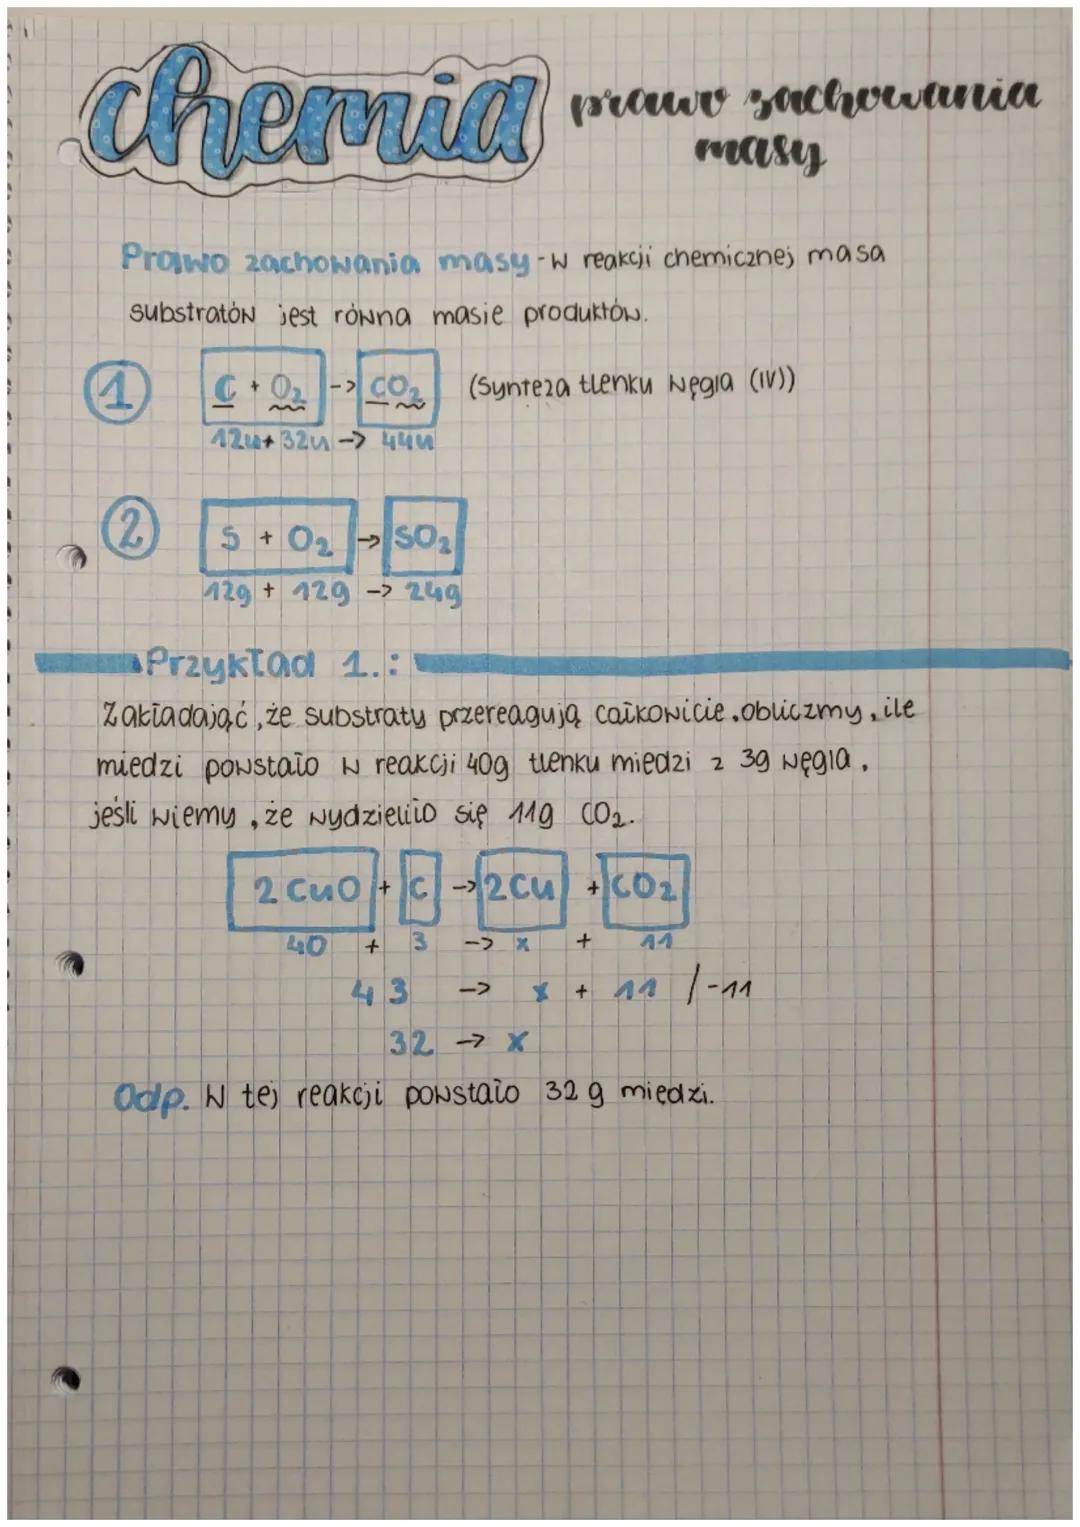 chemia prawo zachowania
masy
Prawo zachowania masy - w reakcji chemicznej masa
substratów jest równa masie produktów.
1 C + O₂ -> CO₂ (Synteza tlenku węgla (IV))
12u + 32u -> 44u
2 S + O₂ -> SO₂
12g + 12g -> 24g
Przykład 1.:
Zakładająć, że substraty przereagują całkowicie, obliczmy, ile
miedzi powstało w reakcji 40g tlenku miedzi z 3g węgla,
jeśli wiemy, że wydzieliło się 11g CO₂.
2 CuO + C -> 2 Cu + CO₂
40 + 3 -> x + 11
43 -> x + 11 /-11
32 -> x
Odp. W tej reakcji powstało 32 g miedzi.